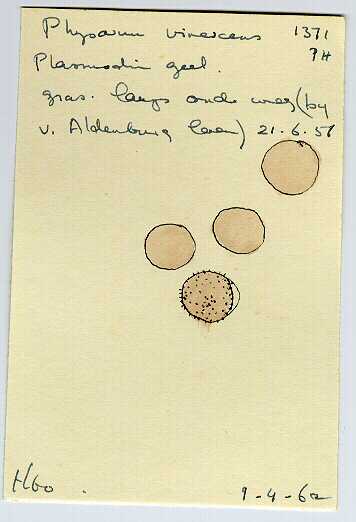 Physarum virescens 1371
PH
Plasmodin geel.
gras. langs oude weg (by
v. Aldenburg laan) 21.6.51
H60 . 9-4-62